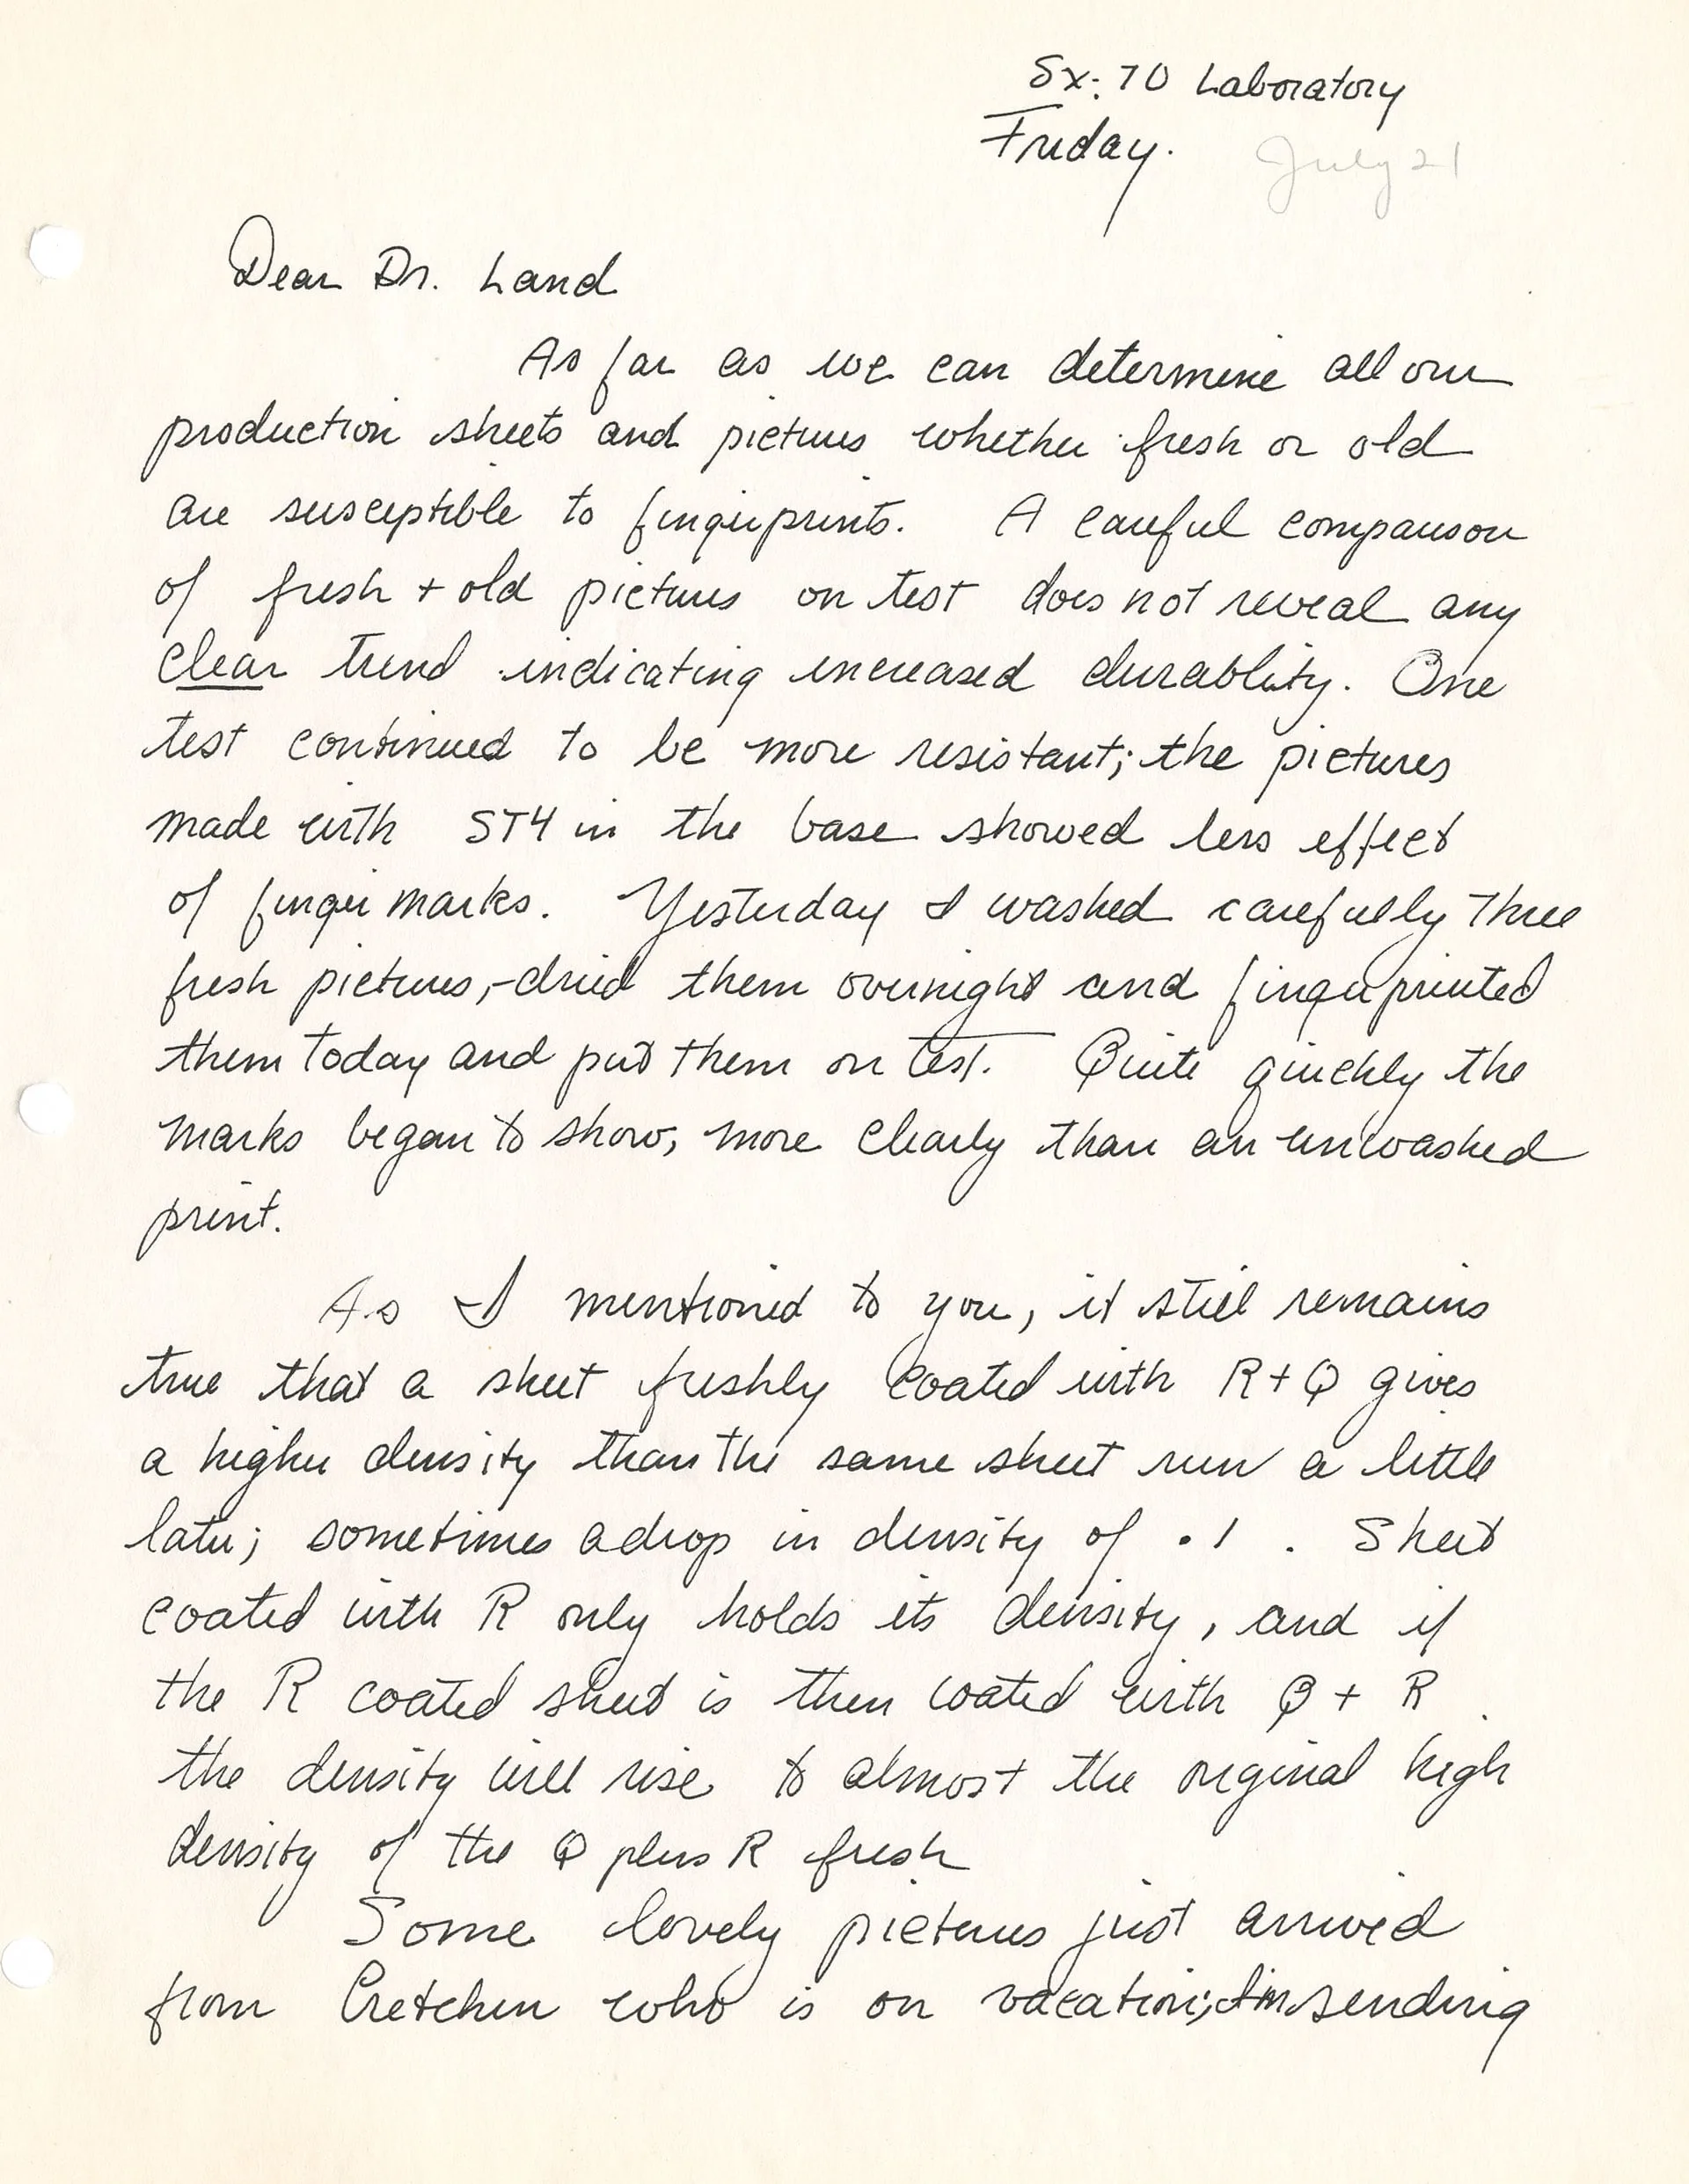 Sx: 70 Laboratory
Friday. July 21
Dear Dr. Land
As far as we can determine all our
production sheets and pictures whether fresh or old
are susceptible to fingerprints. A careful comparison
of fresh + old pictures on test does not reveal any
clear trend indicating increased durablity. One
test continued to be more resistant; the pictures
made with ST4 in the base showed less effect
of finger marks. Yesterday I washed carefully three
fresh pictures,-dried them overnight and fingerprinted
them today and put them on test. Quite quickly the
marks began to show, more clearly than an unwashed
print.
As I mentioned to you, it still remains
true that a sheet freshly coated with R+Q gives
a higher density than the same sheet run a little
later; sometimes a drop in density of .1 . Sheet
coated with R only holds its density, and if
the R coated sheet is then coated with Q + R
the density will rise to almost the orginal high
density of the Q plus R fresh
Some lovely pictures just arrived
from Gretchen who is on vacation; I'm sending